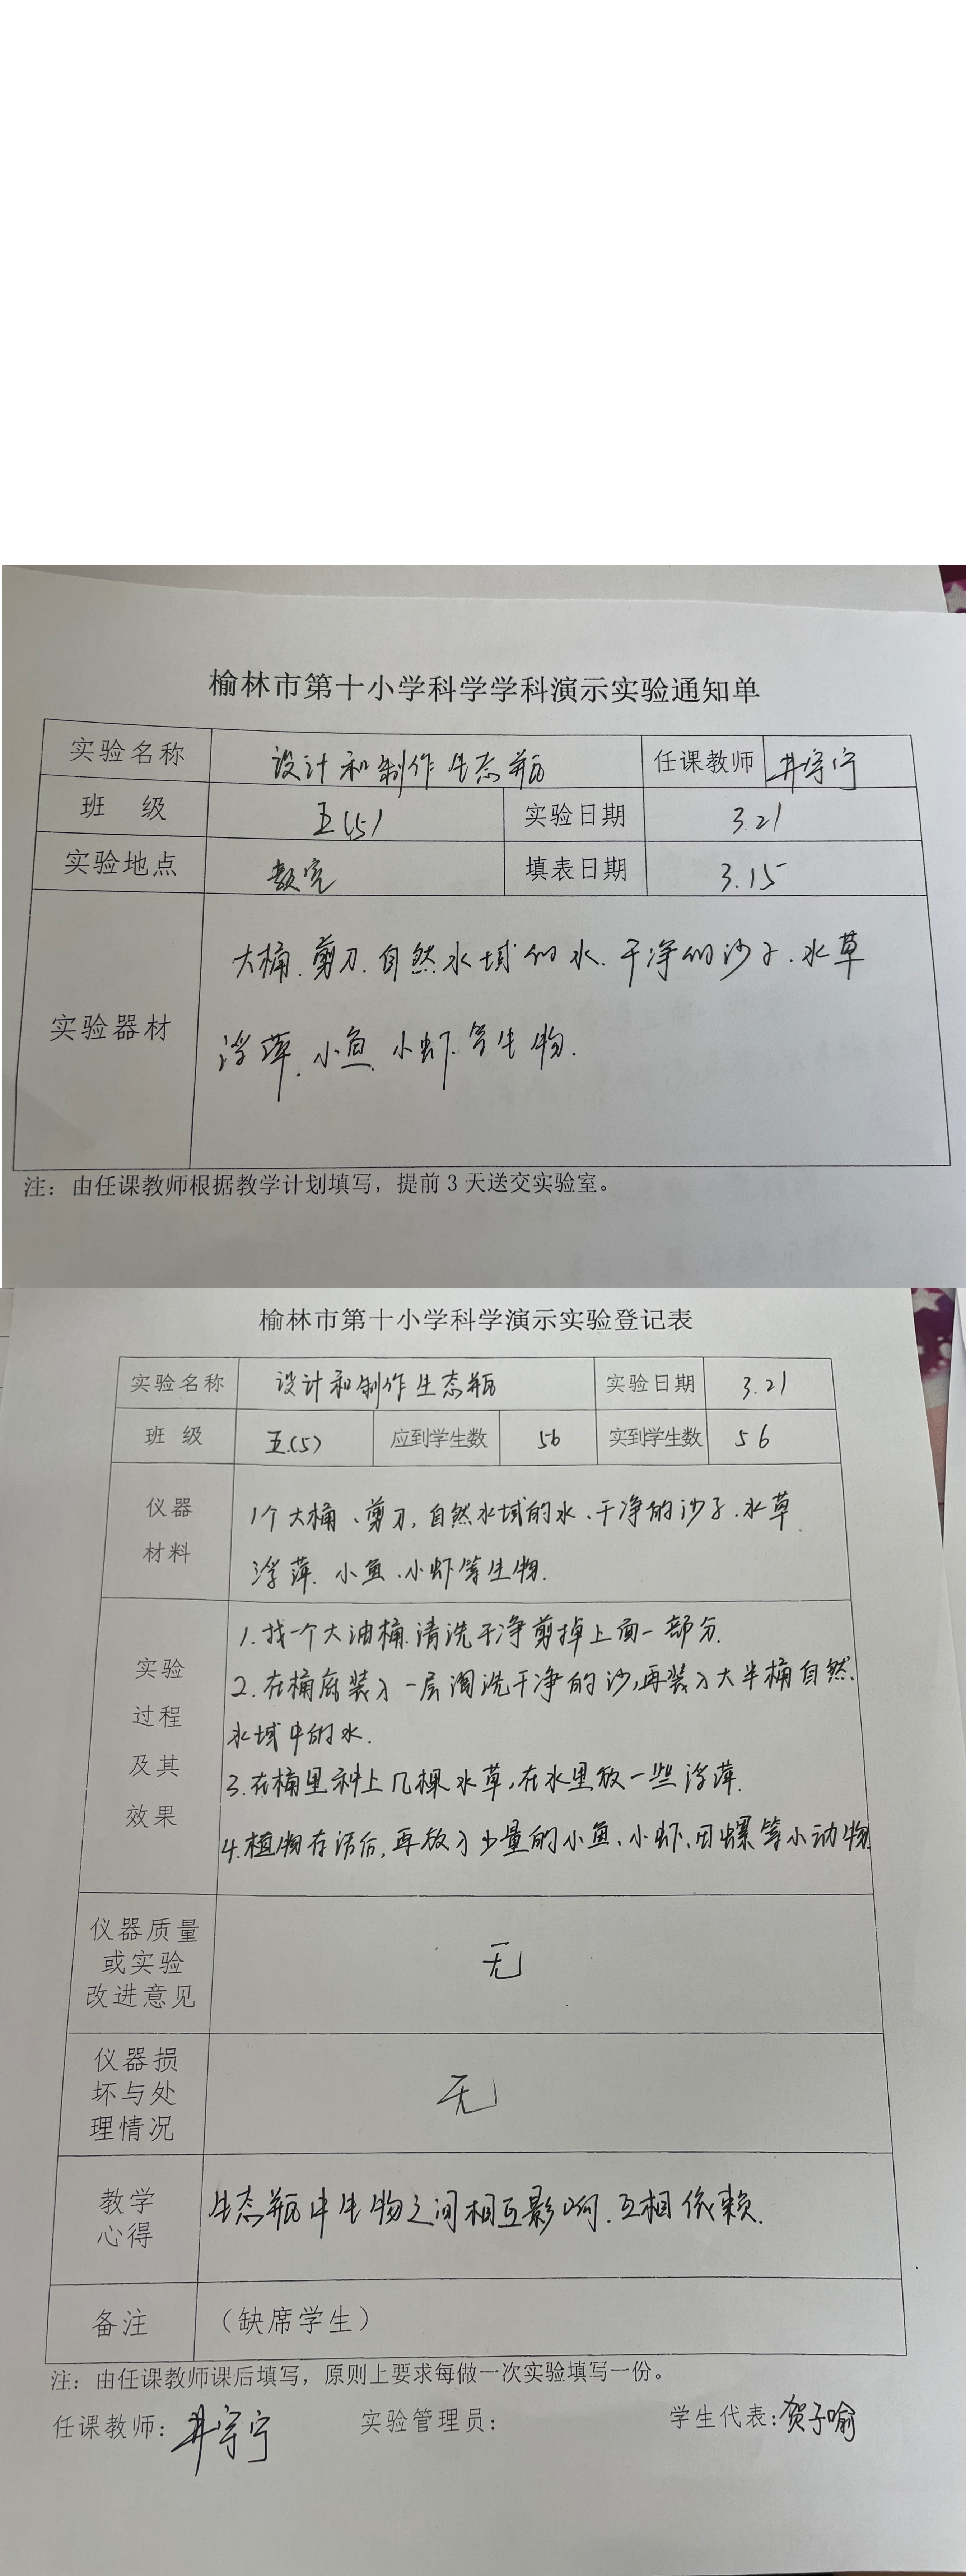 榆林市第十小学科学学科演示实验通知单
实验名称 设计和制作生态瓶 任课教师 井宇宁
班 级 五(5) 实验日期 3.21
实验地点 教室 填表日期 3.15
大桶.剪刀.自然水域的水.干净的沙子.水草
实验器材
浮萍.小鱼.小虾等生物.
注：由任课教师根据教学计划填写，提前3天送交实验室。
榆林市第十小学科学演示实验登记表
实验名称 设计和制作生态瓶 实验日期 3.21
班 级 五(5) 应到学生数 56 实到学生数 56
仪器 1个大桶、剪刀,自然水域的水、干净的沙子.水草
材料 浮萍.小鱼.小虾等生物.
1.找一个大油桶.清洗干净剪掉上面一部分.
实验 2.在桶底装入一层淘洗干净的沙,再装入大半桶自然
过程 水域中的水.
及其 3.在桶里种上几棵水草,在水里放一些浮萍.
效果 4.植物存活后,再放入少量的小鱼、小虾、田螺等小动物
仪器质量
或实验 无
改进意见
仪器损
坏与处 无
理情况
教学 生态瓶中生物之间相互影响.互相依赖.
心得
备注 （缺席学生）
注：由任课教师课后填写，原则上要求每做一次实验填写一份。
任课教师：井宇宁 实验管理员： 学生代表：贺子喻